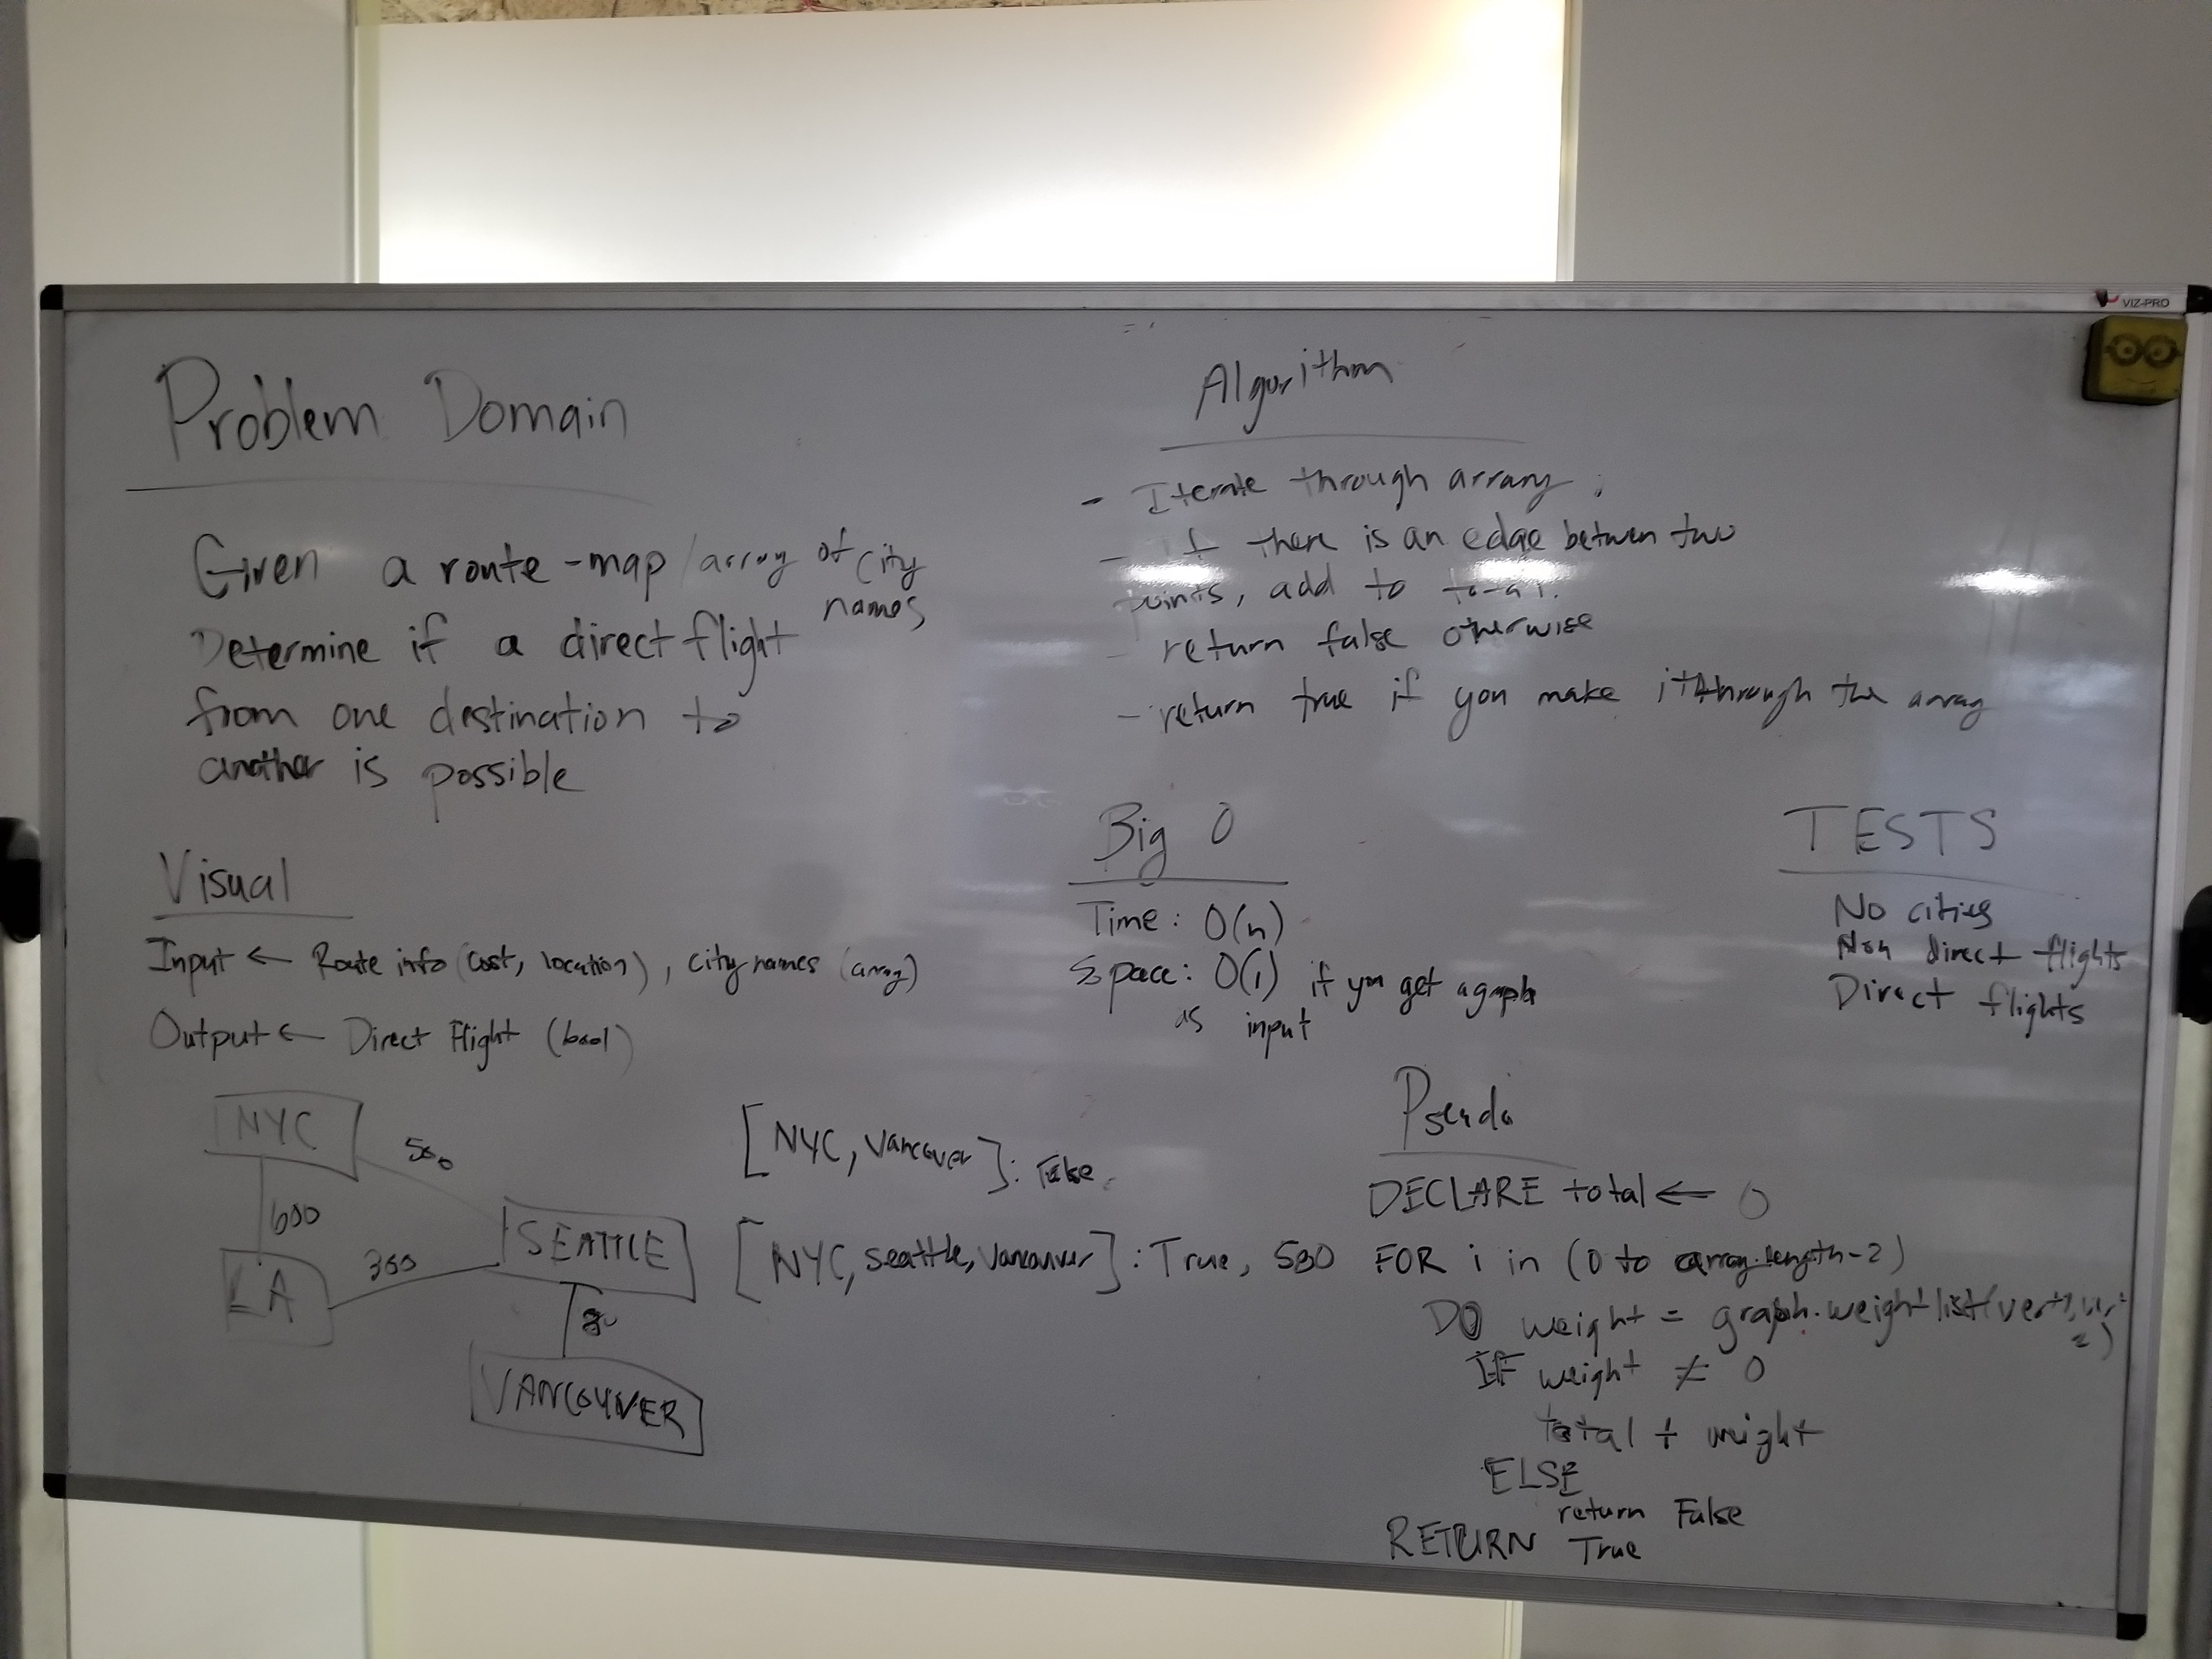 VIZ-PRO
Problem Domain
Given a route-map/array of city
names,
Determine if a direct flight
from one destination to
another is possible
Visual
Input ← Route info (cost, location), city names (array)
Output ← Direct Flight (bool)
NYC
500
600
LA
300
SEATTLE
80
VANCOUVER
[NYC, Vancouver]: False
[NYC, Seattle, Vancouver]: True, 580
Algorithm
- Iterate through array;
- If there is an edge between two
points, add to total.
- return false otherwise
- return true if you make it through the array
Big O
Time: O(n)
Space: O(1) if you get a graph
as input
TESTS
No cities
Non direct flights
Direct flights
Pseudo
DECLARE total ← 0
FOR i in (0 to array.length-2)
DO weight = graph.weightlist(vert1, vert
2)
IF weight ≠ 0
total + weight
ELSE
return False
RETURN True